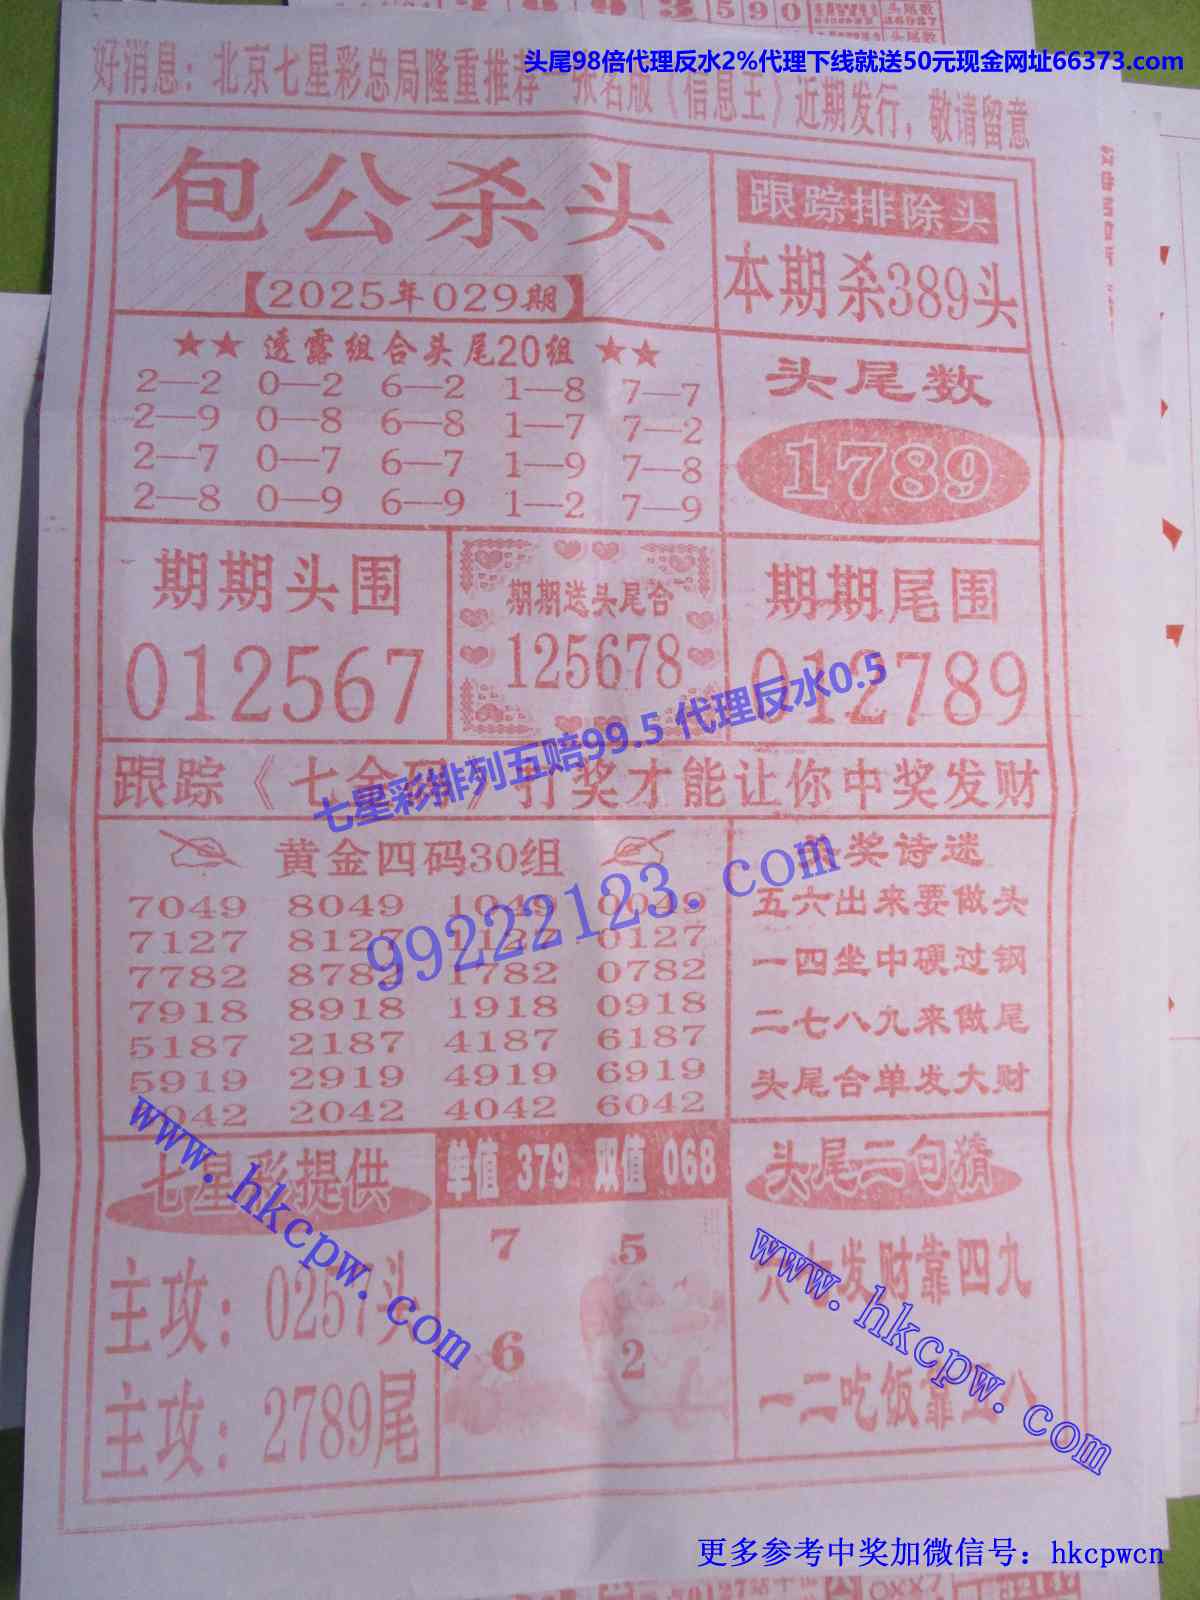 头尾98倍代理反水2%代理下线就送50元现金网址66373.com
好消息：北京七星彩总局隆重推荐 张名版《信息王》近期发行，敬请留意
包公杀头
【2025年029期】
跟踪排除头
本期杀389头
★★ 透露组合头尾20组 ★★
2—2 0—2 6—2 1—8 7—7
2—9 0—8 6—8 1—7 7—2
2—7 0—7 6—7 1—9 7—8
2—8 0—9 6—9 1—2 7—9
头尾数
1789
期期头围
012567
期期送头尾合
125678
期期尾围
012789
七星彩排列五赔99.5 代理反水0.5
跟踪《七金码》打奖才能让你中奖发财
黄金四码30组
7049 8049 1049 0049
7127 8127 1127 0127
7782 8782 1782 0782
7918 8918 1918 0918
5187 2187 4187 6187
5919 2919 4919 6919
042 2042 4042 6042
99222123.com
头奖诗迷
五六出来要做头
一四坐中硬过钢
二七八九来做尾
头尾合单发大财
七星彩提供
主攻：0257头
主攻：2789尾
www.hkcpw.com
单值 379 双值 068
7 5
6 2
头尾二句猜
六七发财靠四九
一二吃饭靠五八
www.hkcpw.com
更多参考中奖加微信号：hkcpwcn